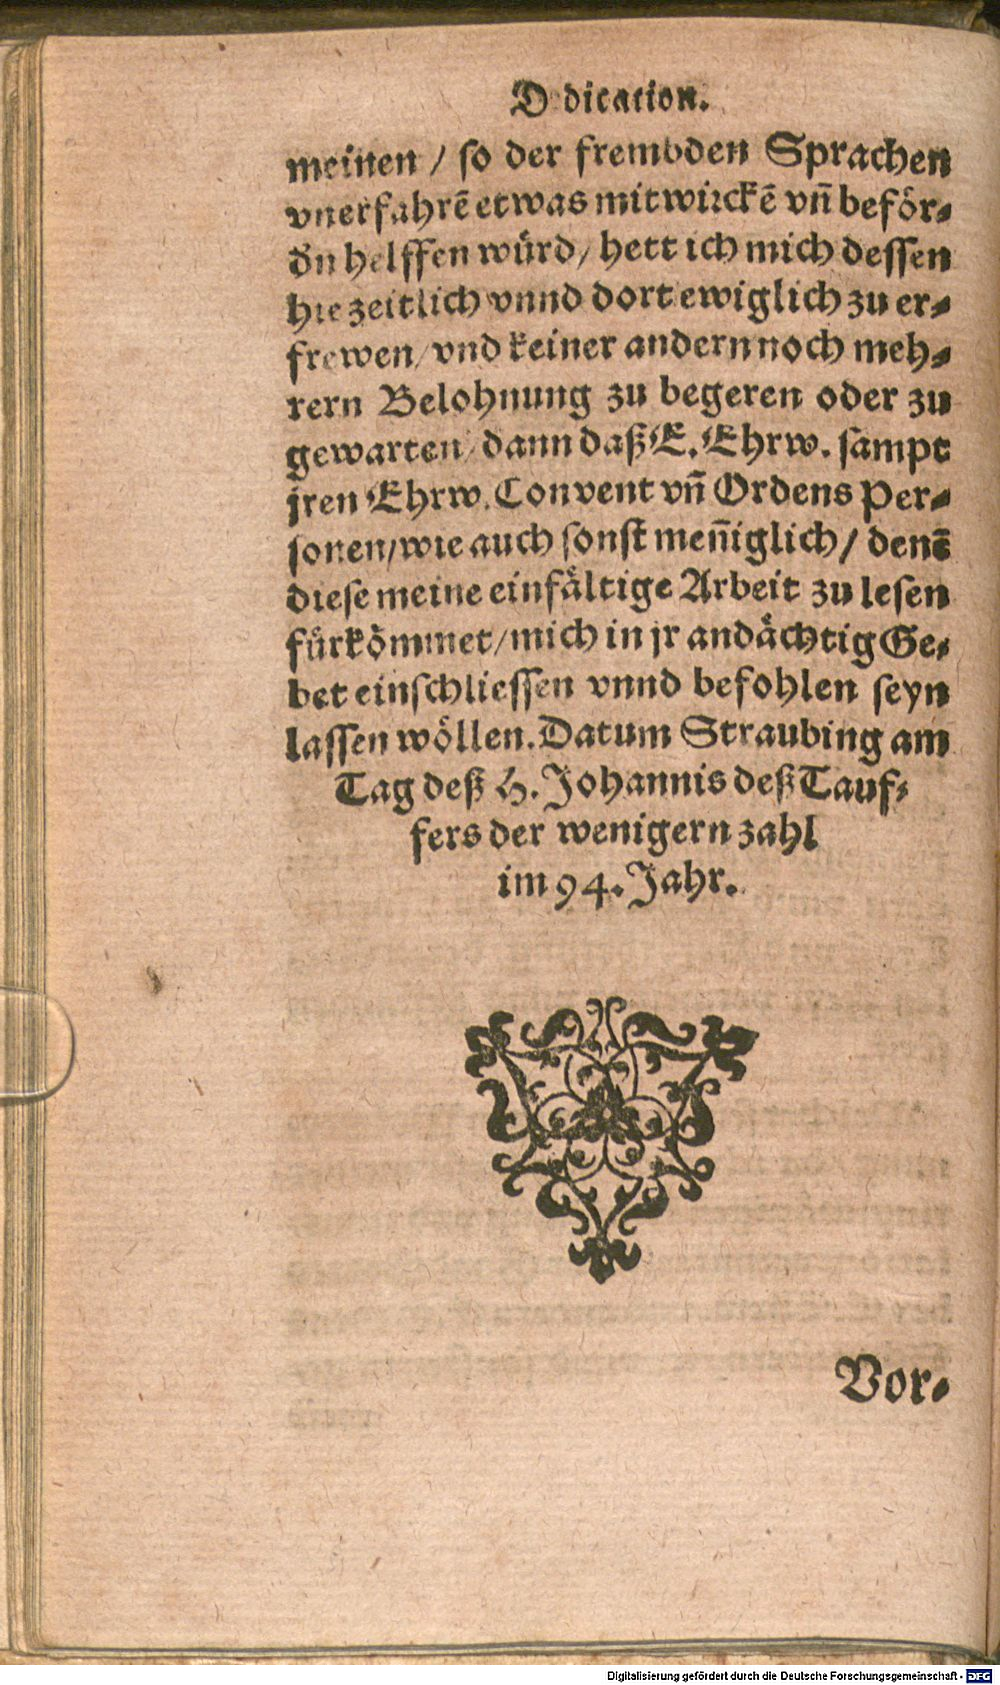 Dedication.
meinen / so der frembden Sprachen
vnerfahrē etwas mitwirckē vn̄ beför⸗
dn helffen würd / hett ich mich dessen
hie zeitlich vnnd dort ewiglich zu er⸗
frewen / vnd keiner andern noch meh⸗
rern Belohnung zu begeren oder zu
gewarten / dann daß E. Ehrw. sampt
jren Ehrw. Convent vn̄ Ordens Per⸗
sonen / wie auch sonst men̄iglich / denē
diese meine einfältige Arbeit zu lesen
fürkömmet / mich in jr andächtig Ge⸗
bet einschliessen vnnd befohlen seyn
lassen wöllen. Datum Straubing am
Tag deß H. Johannis deß Tauf⸗
fers der wenigern zahl
im 94. Jahr.
Vor⸗
Digitalisierung gefördert durch die Deutsche Forschungsgemeinschaft - DFG